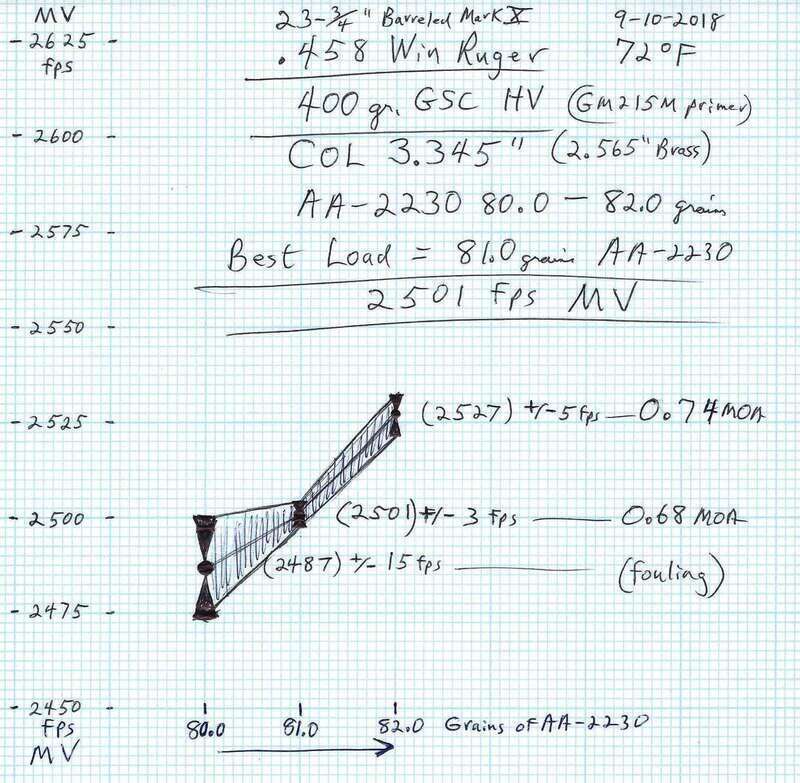 MV
- 2625 -
fps
23-3/4" Barreled Mark X 9-10-2018
.458 Win Ruger 72°F
400 gr. GSC HV (GM215M primer)
- 2600 -
COL 3.345" (2.565" Brass)
AA-2230 80.0 - 82.0 grains
- 2575 -
Best Load = 81.0 grains AA-2230
2501 fps MV
- 2550 -
- 2525 - (2527) +/- 5 fps — 0.74 MOA
- 2500 - (2501) +/- 3 fps — 0.68 MOA
(2487) +/- 15 fps — (fouling)
- 2475 -
- 2450 -
fps
MV
80.0 81.0 82.0 Grains of AA-2230